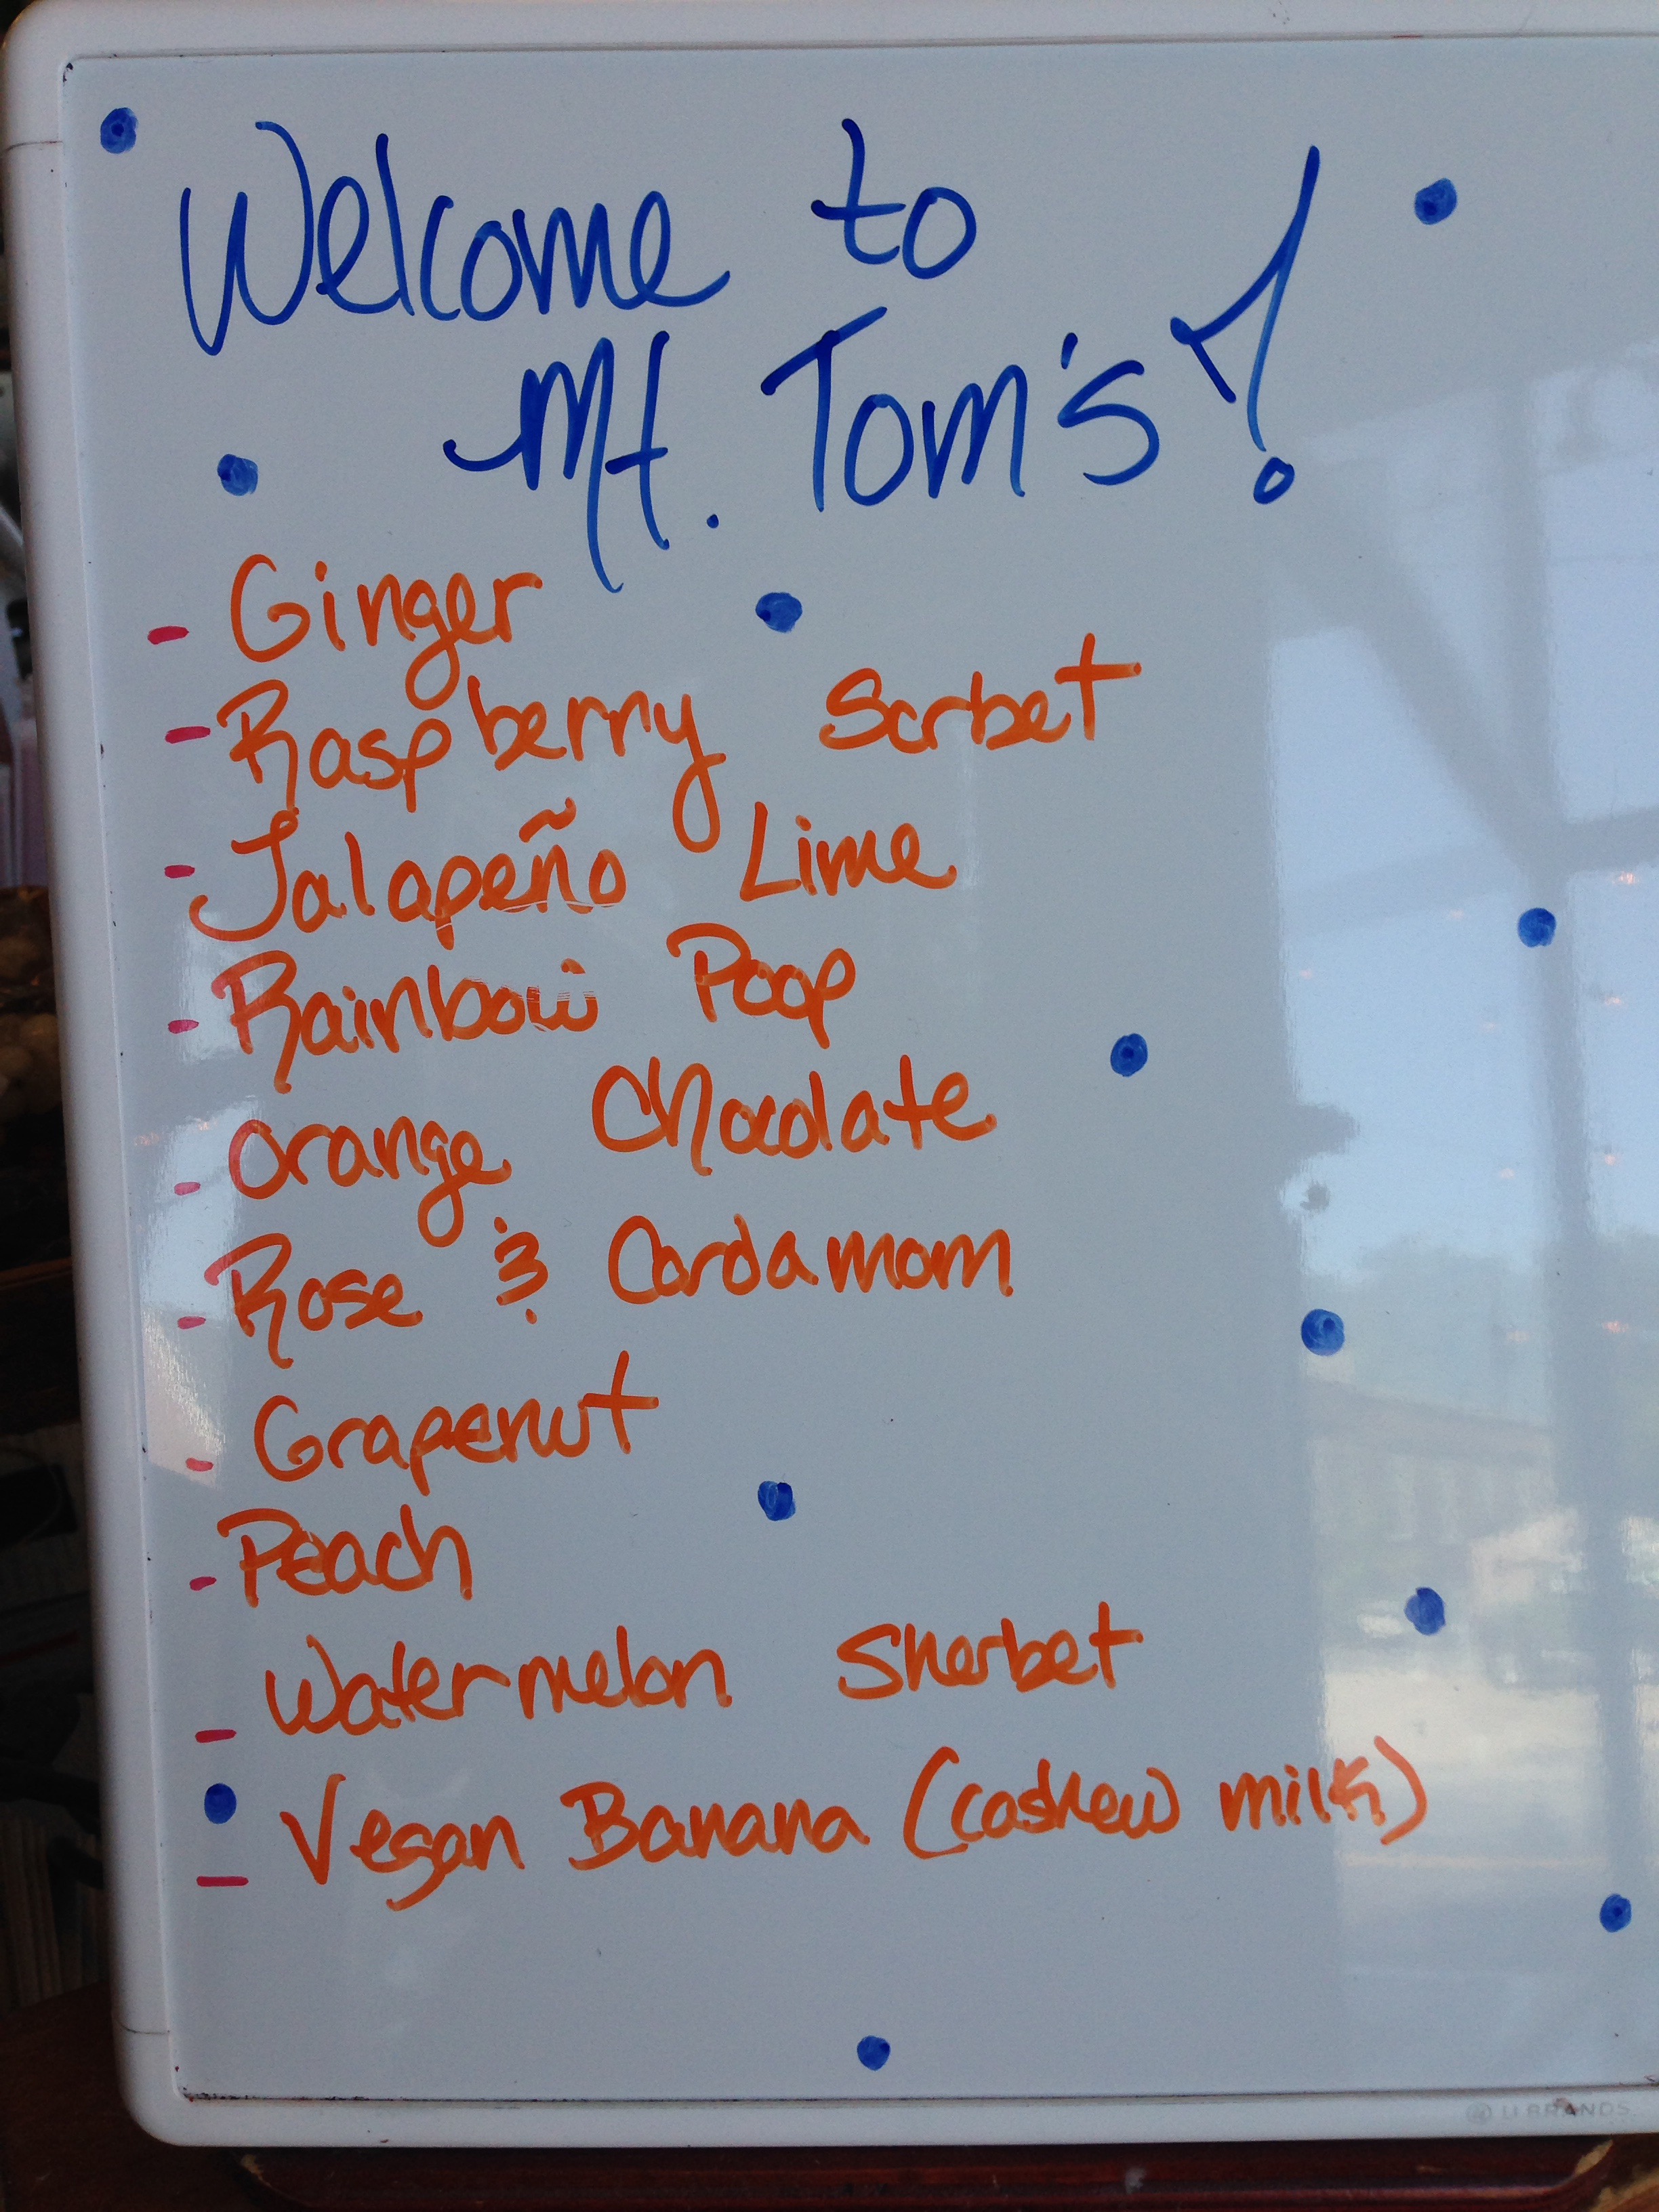 Welcome to
Mt. Tom's!
- Ginger
- Raspberry Sorbet
- Jalapeño Lime
- Rainbow Poop
- Orange Chocolate
- Rose & Cardamom
- Grapenut
- Peach
- Watermelon Sherbet
- Vegan Banana (cashew milk)
U BRANDS